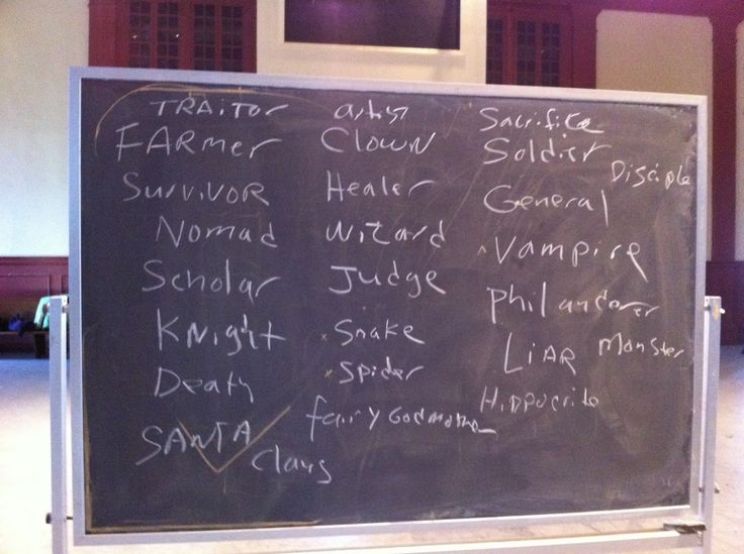 TRAITOR
FARmer
SURVIVOR
Nomad
Scholar
KNight
Death
SANTA
Claus
artist
Clown
Healer
Wizard
Judge
Snake
Spider
fairy Godmother
Sacrifice
Soldier
Disciple
General
Vampire
Philanderer
LiAR Monster
Hippocrite